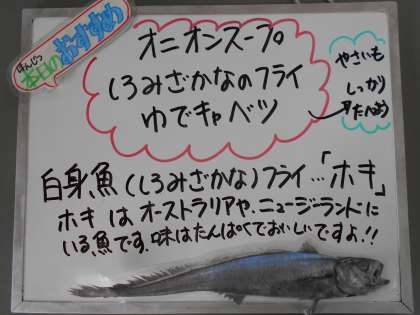 ほんじつ
本日のおすすめ
オニオンスープ
しろみざかなのフライ
ゆでキャベツ
やさいも
しっかり
たべよう
白身魚(しろみざかな)フライ…「ホキ」
ホキはオーストラリアや、ニュージーランドに
いる魚です。味はたんぱくでおいしいですよ!!